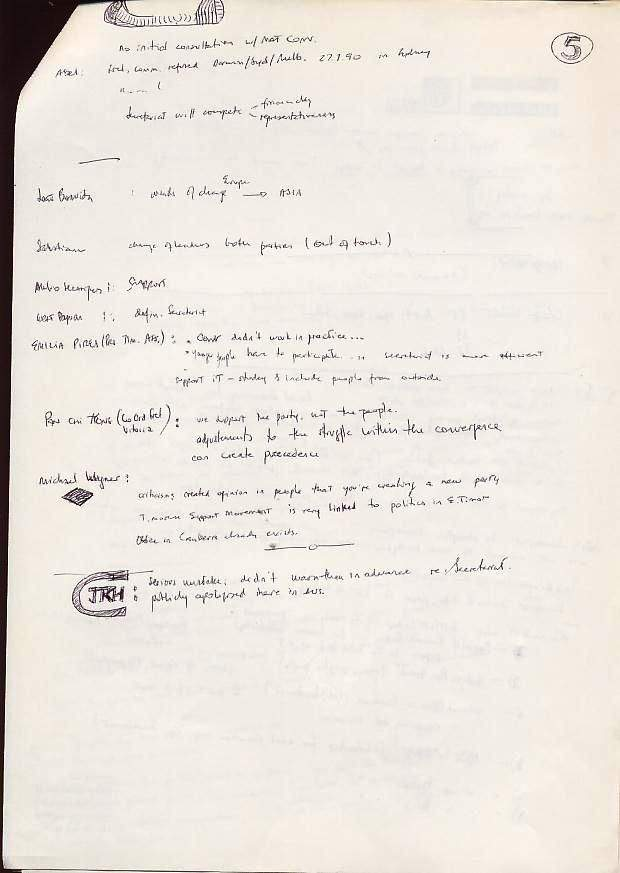 5
no initial consultation w/ NAT CONV.
Abel: Fret. Comm. refused Darwin/Syd/Melb. 27.1.90 in Sydney
Secretariat will compete financially
representativeness
: winds of change Europe → ASIA
change of leaders both parties (out of touch)
: Support
: defin. Secretariat
EMILIA PIRES : . CONV didn't work in practice...
. young people have to participate .. Secretariat is more efficient
support IT - study & include people from outside.
: we support the party, not the people.
adjustements to the struggle within the convergence
can create precedence
Michael Wagner :
criticising created opinion in people that you're creating a new party
Timorese Support Movement is very linked to politics in E. Timor
Office in Canberra already exists.
JRH : Serious mistake; didn't warn them in advance re Secretariat.
: publicly apologised here in